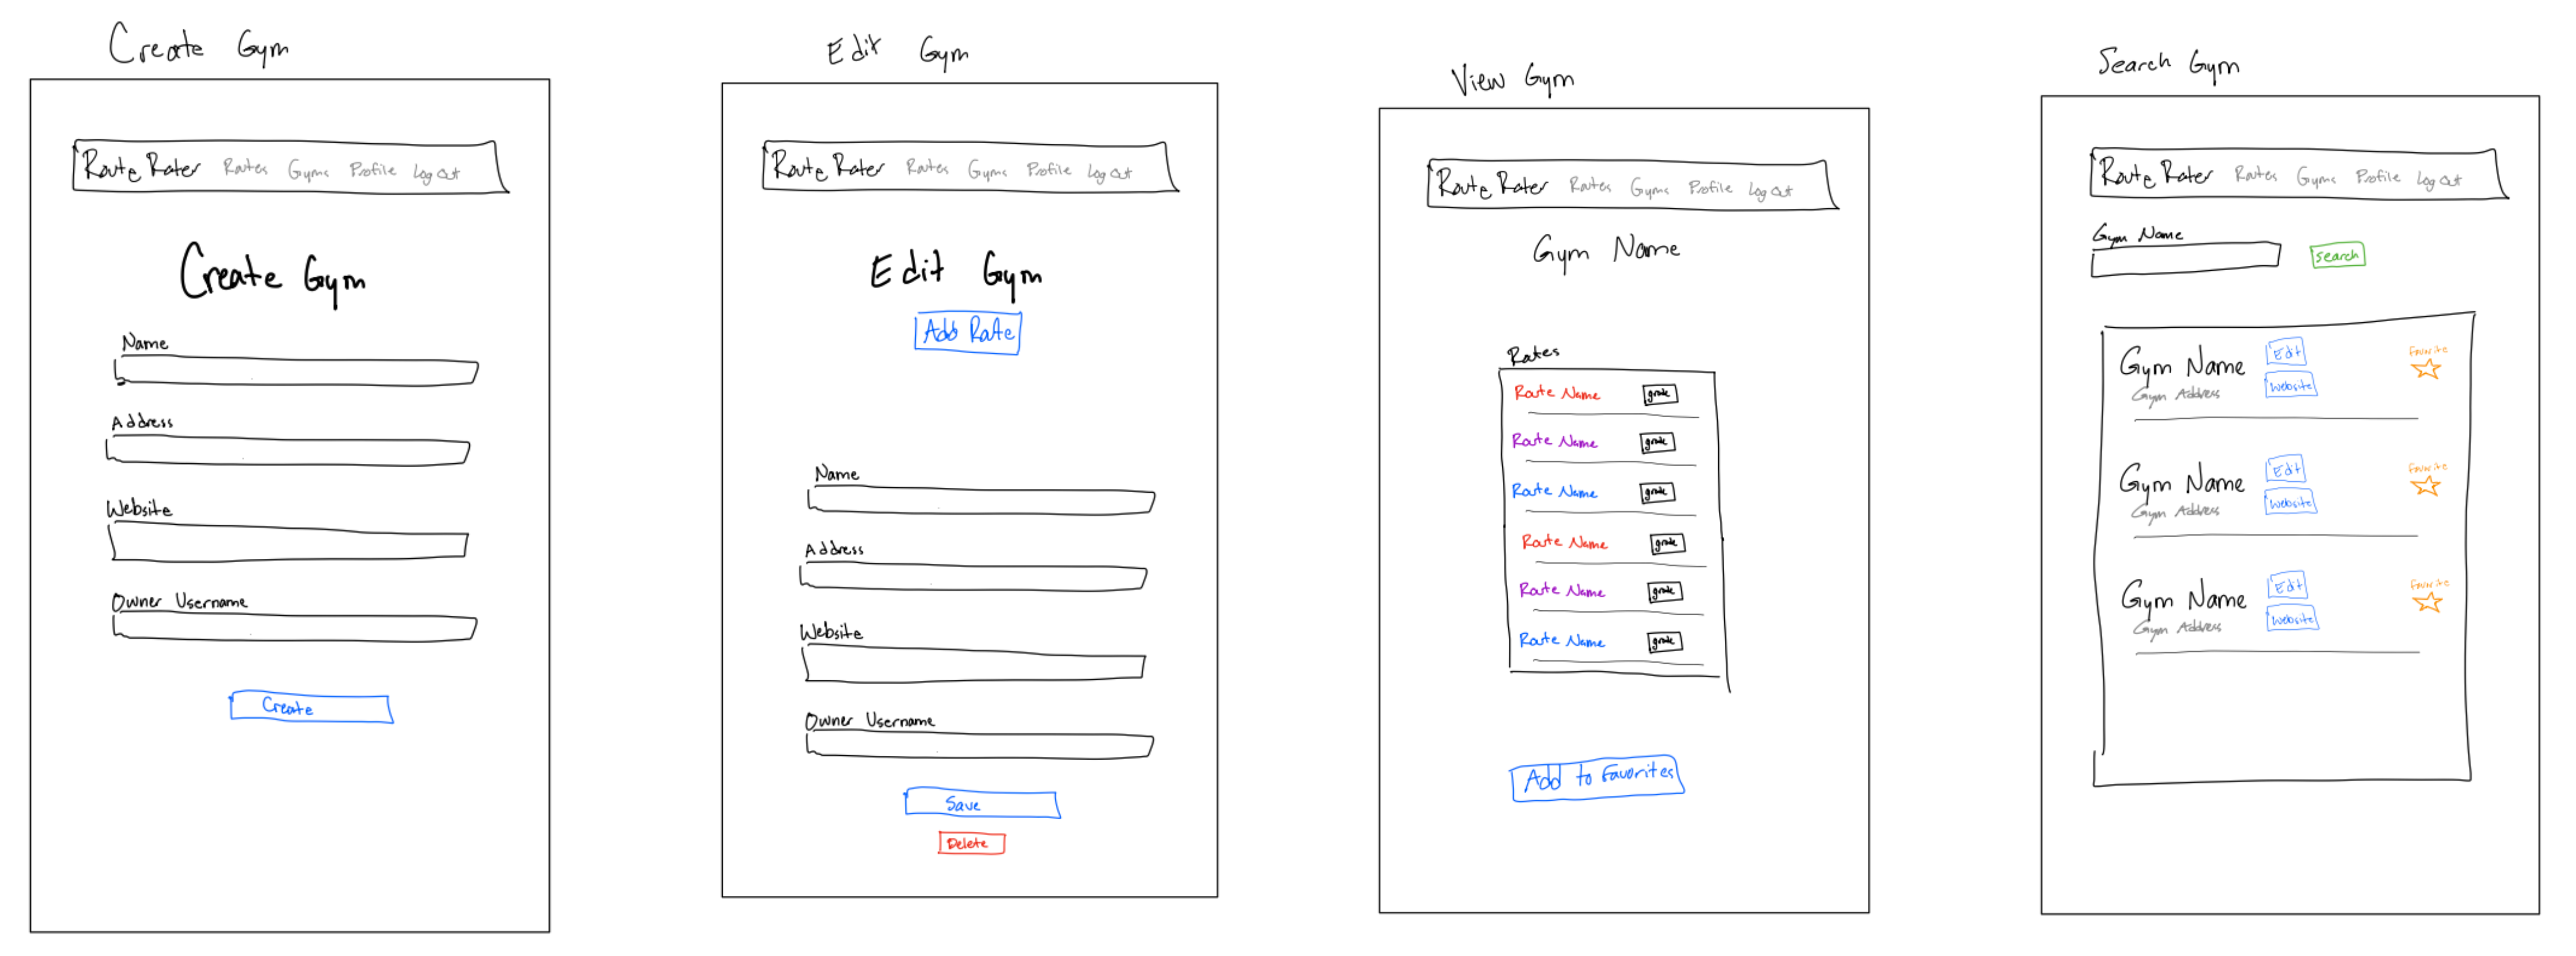 Create Gym
Route Rater Routes Gyms Profile Log Out
Create Gym
Name
Address
Website
Owner Username
Create
Edit Gym
Route Rater Routes Gyms Profile Log Out
Edit Gym
Add Route
Name
Address
Website
Owner Username
Save
Delete
View Gym
Route Rater Routes Gyms Profile Log Out
Gym Name
Routes
Route Name grade
Route Name grade
Route Name grade
Route Name grade
Route Name grade
Route Name grade
Add to Favorites
Search Gym
Route Rater Routes Gyms Profile Log Out
Gym Name
Search
Gym Name Edit Favorite
Gym Address Website
Gym Name Edit Favorite
Gym Address Website
Gym Name Edit Favorite
Gym Address Website